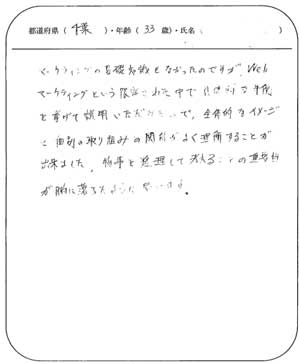 都道府県（千葉）・年齢（33歳）・氏名（　　　）
マーケティングの基礎知識もなかったのですが、Web
マーケティングという限定された中で具体的な手段
を挙げて説明いただいたので、全体的なイメージ
と自社の取り組みの関係がよく理解することが
出来ました。物事を整理して考えることの重要性
が腑に落ちたように思います。